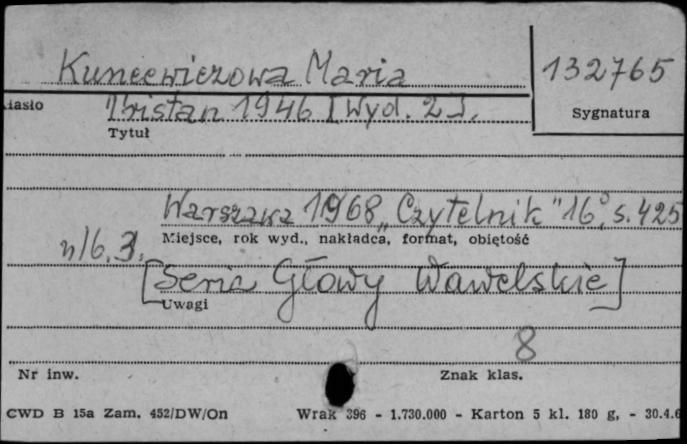 Kuncewiczowa Maria 132765
iasło Tristan 1946 [Wyd. 2]. Sygnatura
Tytuł
Warszawa 1968 „Czytelnik" 16°, s. 425
n/6.3. Miejsce, rok wyd., nakładca, format, objętość
[Seria Głowy Wawelskie]
Uwagi
8
Nr inw. Znak klas.
CWD B 15a Zam. 452/DW/On Wrak 396 - 1.730.000 - Karton 5 kl. 180 g, - 30.4.6